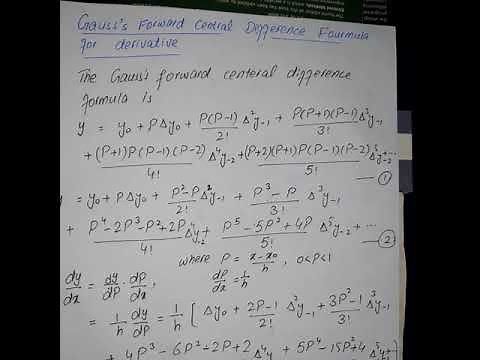 Gauss's Forward Central Difference Foumula
for derivative
The Gauss's forward centeral difference
formula is
y = y₀ + PΔy₀ + P(P-1)/2! Δ²y₋₁ + P(P+1)(P-1)/3! Δ³y₋₁
+ (P+1)P(P-1)(P-2)/4! Δ⁴y₋₂ + (P+2)(P+1)P(P-1)(P-2)/5! Δ⁵y₋₂ + ...
①
= y₀ + PΔy₀ + P²-P/2! Δ²y₋₁ + P³-P/3! Δ³y₋₁
+ P⁴-2P³-P²+2P/4! Δ⁴y₋₂ + P⁵-5P³+4P/5! Δ⁵y₋₂ + ...
②
where P = x-x₀/h, 0<P<1
dy/dx = dy/dP . dP/dx, dP/dx = 1/h
= 1/h dy/dP = 1/h [ Δy₀ + 2P-1/2! Δ²y₋₁ + 3P²-1/3! Δ³y₋₁
+ 4P³-6P²-2P+2 Δ⁴y + 5P⁴-15P²+4 Δ⁵y